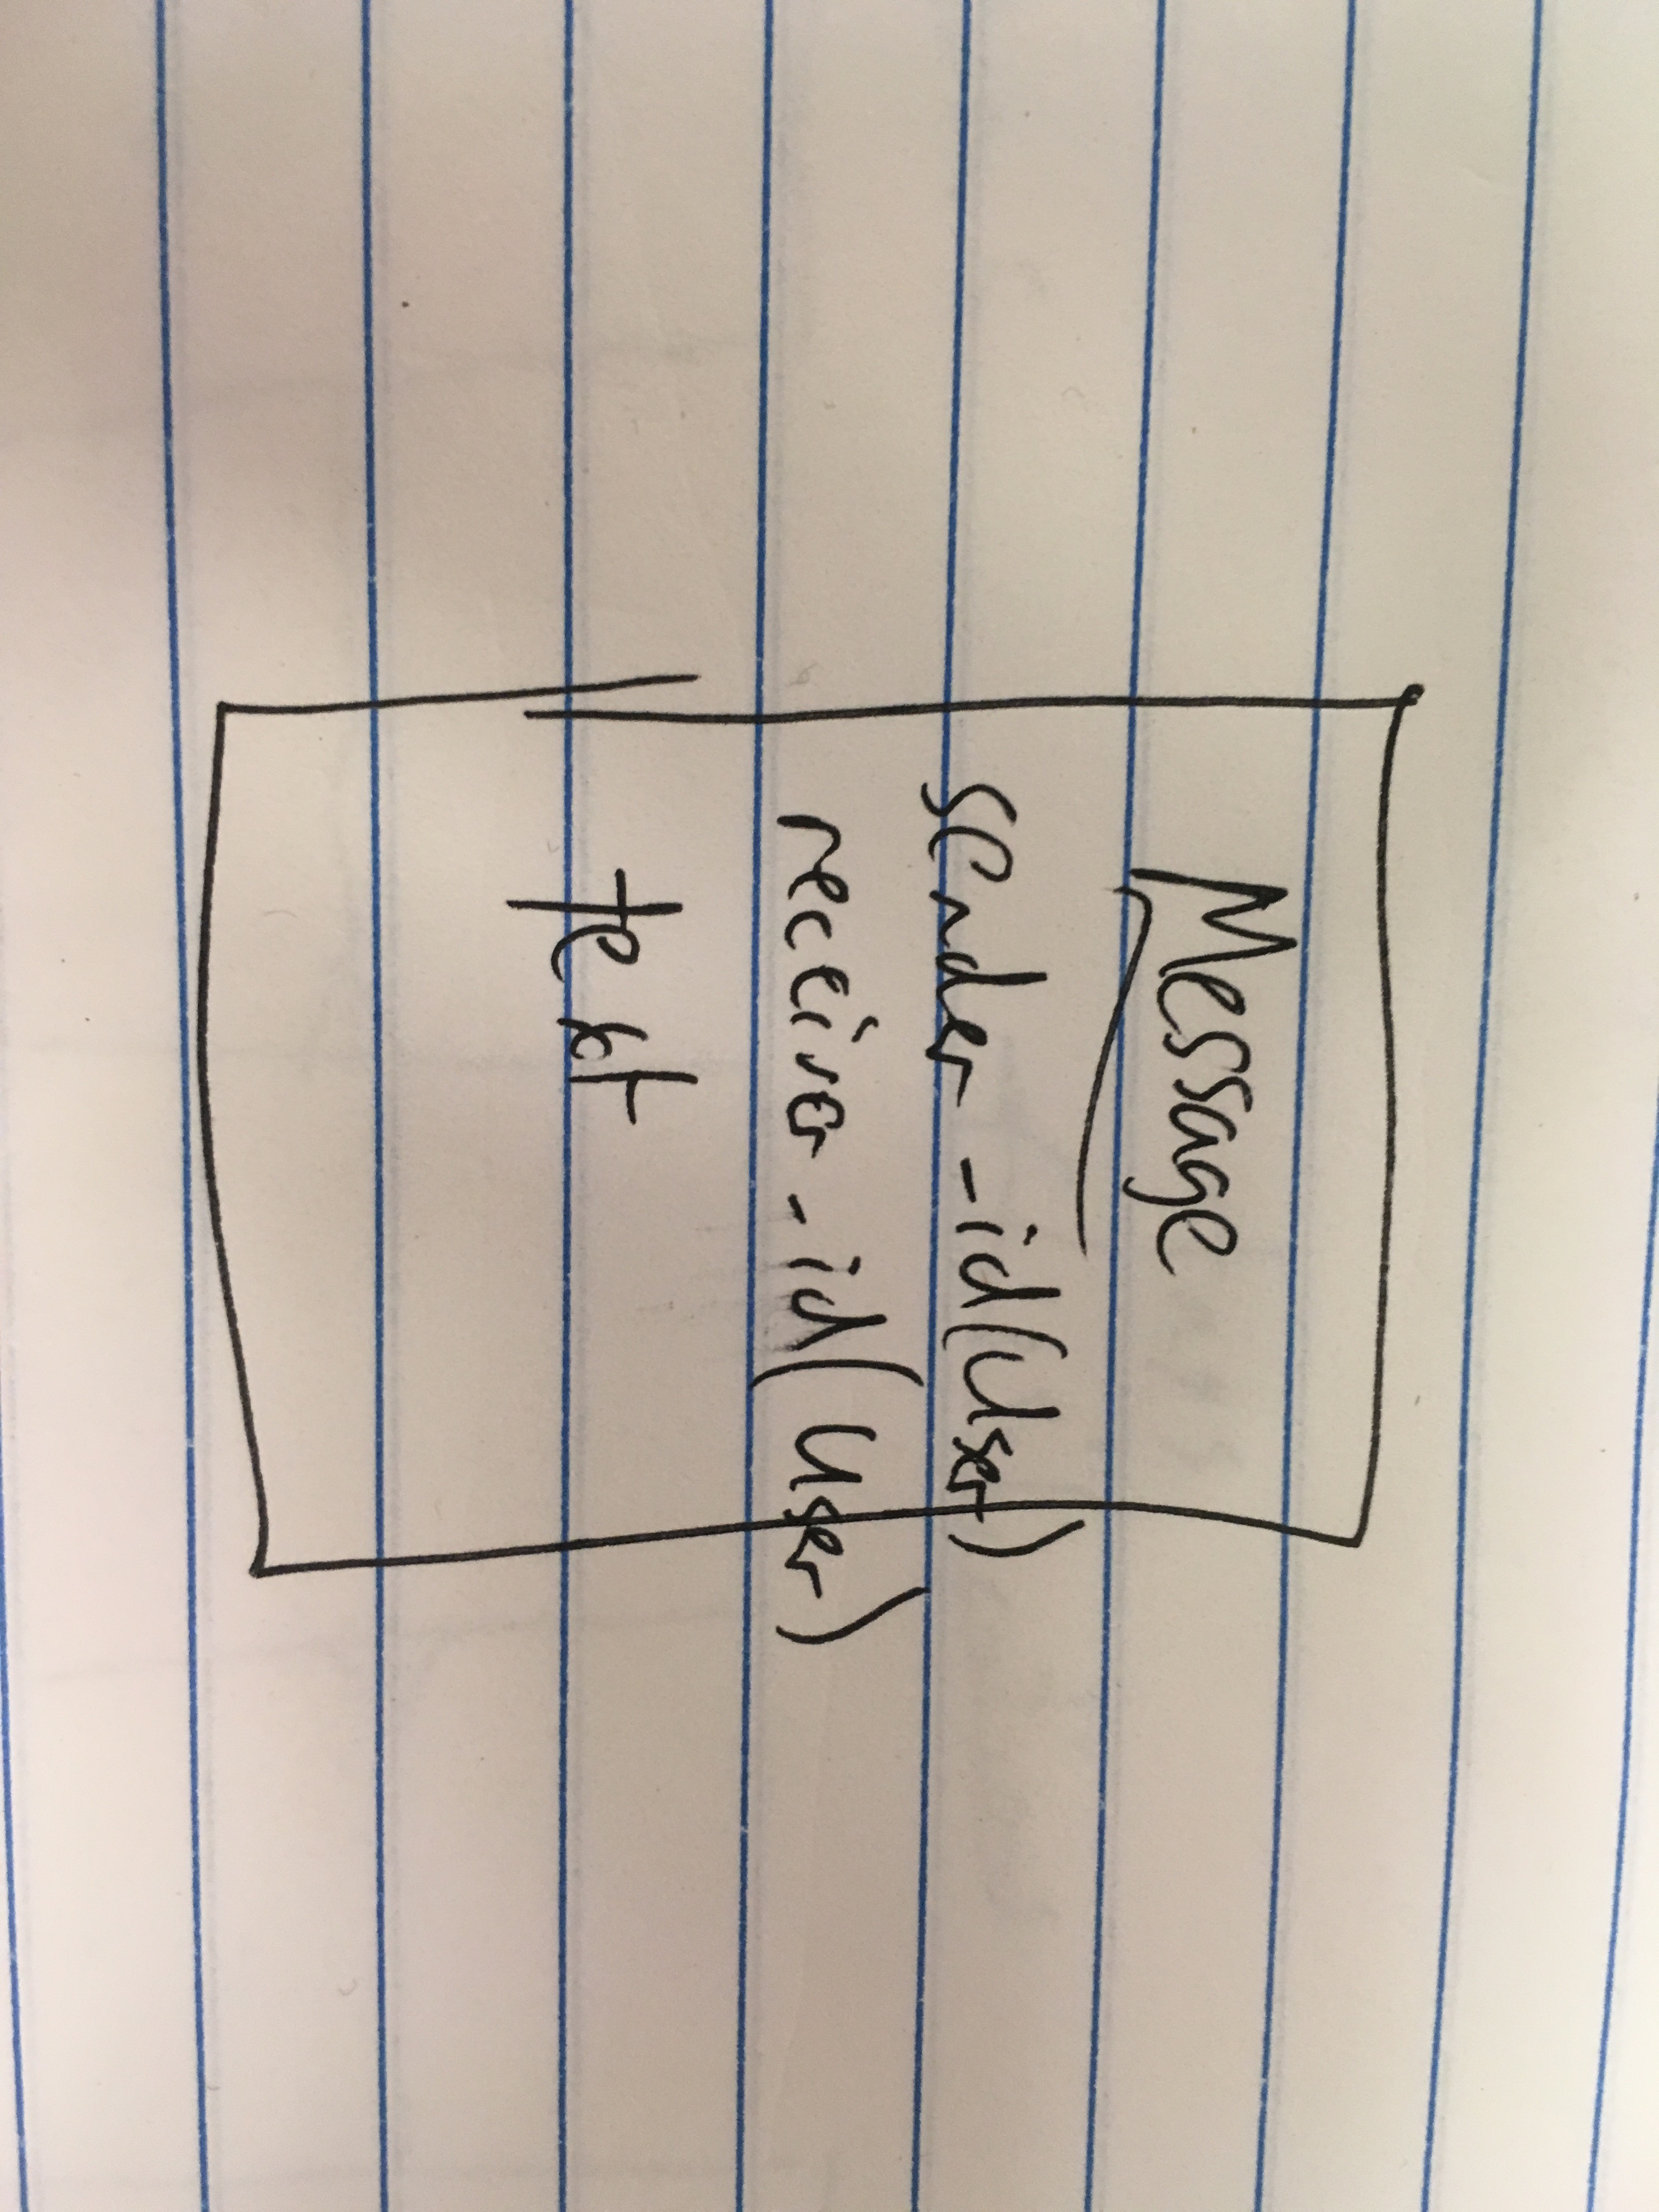 Message
sender-id(User)
receiver-id(User)
text